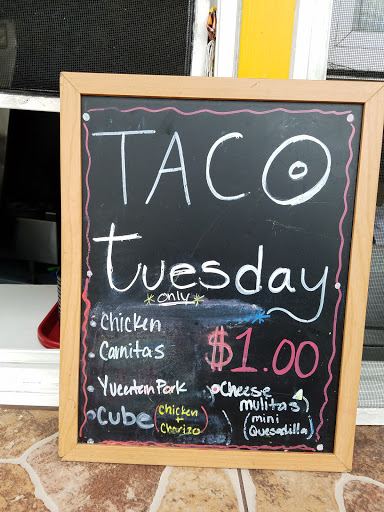 TACO
tuesday
*only*
• Chicken
• Carnitas
$1.00
• Yucentein Pork
• Cube (Chicken + Chorizo)
• Cheese mulitas
(mini Quesadilla)